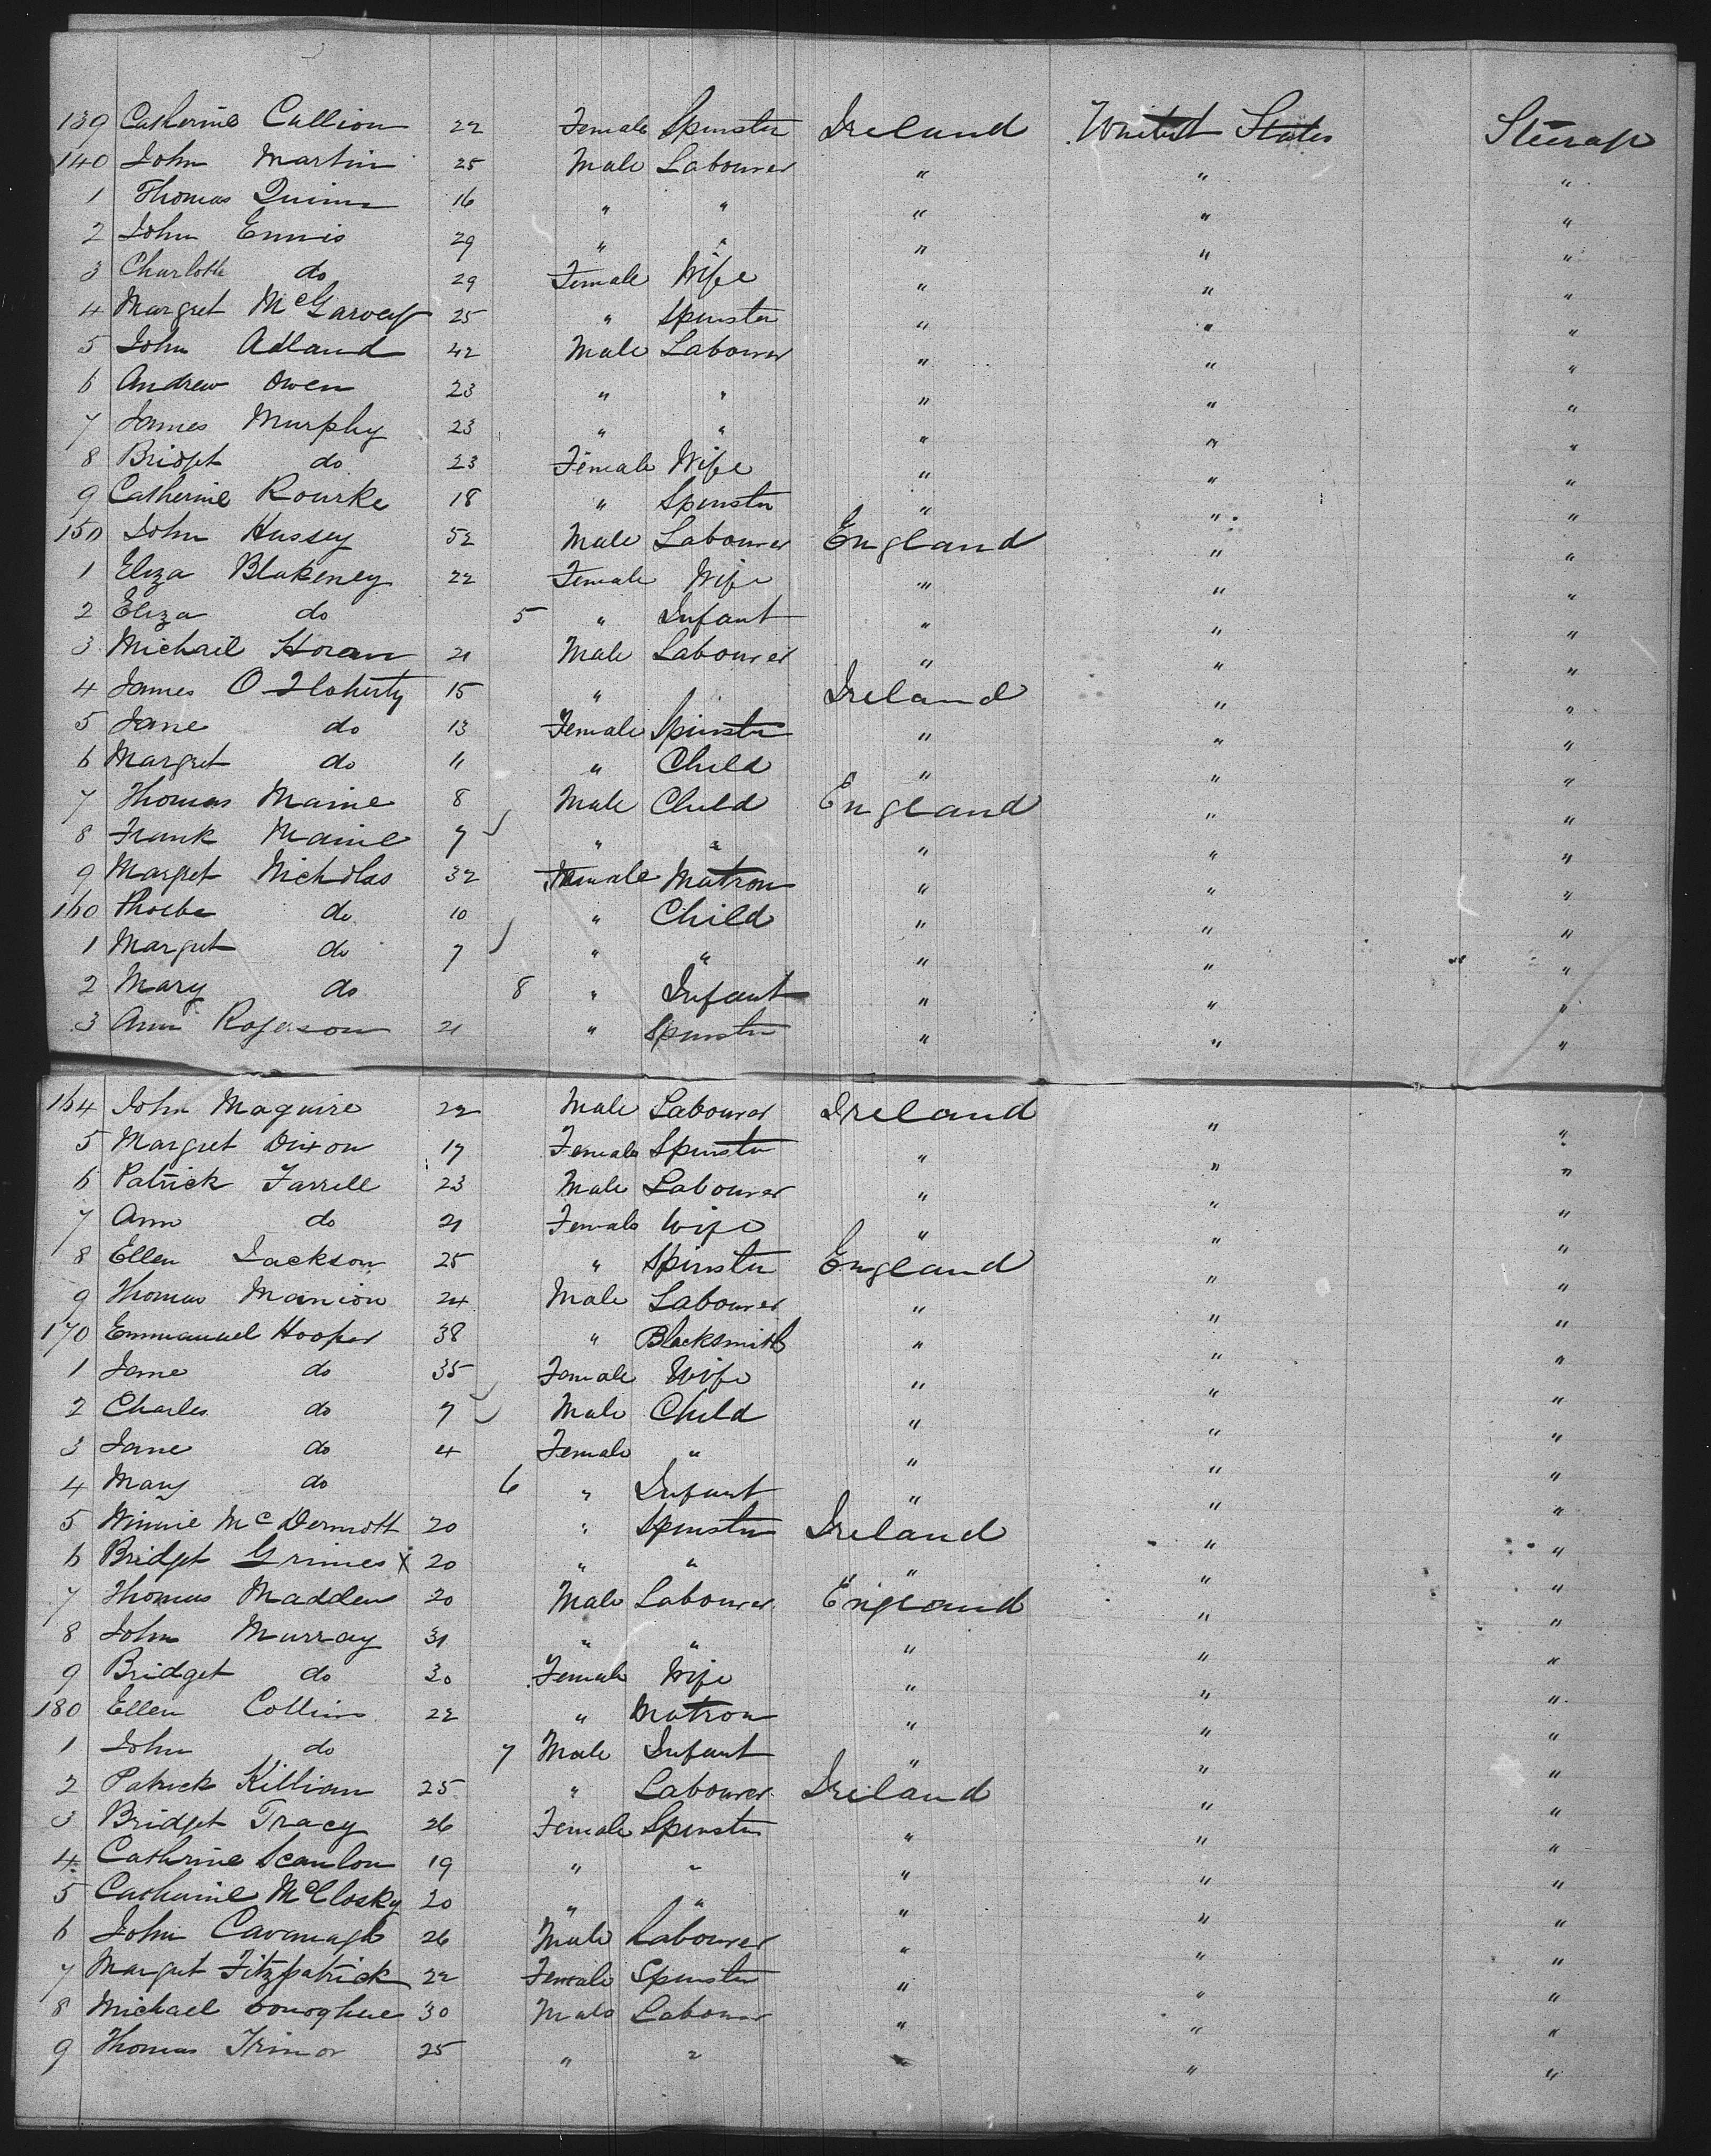 139 Catherine Callion 22 Female Spinster Ireland United States Steerage
140 John Martin 25 Male Labourer " " "
1 Thomas Quinn 16 " " " " "
2 John Ennis 29 " " " " "
3 Charlotte do 29 Female Wife " " "
4 Margret McGarvey 25 " Spinster " " "
5 John Adland 42 Male Labourer " " "
6 Andrew Owen 23 " " " " "
7 James Murphy 23 " " " " "
8 Bridget do 23 Female Wife " " "
9 Catherine Rourke 18 " Spinster " " "
150 John Hussey 52 Male Labourer England " "
1 Eliza Blakeney 22 Female Wife " " "
2 Eliza do 5 " Infant " " "
3 Michael Horan 21 Male Labourer " " "
4 James O Floherty 15 " " Ireland " "
5 Jane do 13 Female Spinster " " "
6 Margret do 11 " Child " " "
7 Thomas Maine 8 Male Child England " "
8 Frank Maine 7 " " " " "
9 Margret Nicholas 32 Female Matron " " "
160 Phoebe do 10 " Child " " "
1 Margret do 7 " " " " "
2 Mary do 8 " Infant " " "
3 Ann Rogerson 21 " Spinster " " "
164 John Maguire 22 Male Labourer Ireland " "
5 Margret Dixon 17 Female Spinster " " "
6 Patrick Farrell 23 Male Labourer " " "
7 Ann do 21 Female Wife " " "
8 Ellen Jackson 25 " Spinster England " "
9 Thomas Manion 24 Male Labourer " " "
170 Emmanuel Hooper 38 " Blacksmith " " "
1 Jane do 35 Female Wife " " "
2 Charles do 7 Male Child " " "
3 Jane do 4 Female " " " "
4 Mary do 6 " Infant " " "
5 Winnie McDermott 20 " Spinster Ireland " "
6 Bridget Grimes X 20 " " " " "
7 Thomas Madden 20 Male Labourer England " "
8 John Murray 31 " " " " "
9 Bridget do 30 Female Wife " " "
180 Ellen Collins 22 " Matron " " "
1 John do 7 Male Infant " " "
2 Patrick Killian 25 " Labourer Ireland " "
3 Bridget Tracy 26 Female Spinster " " "
4 Cathrine Scanlon 19 " " " " "
5 Catharine McClosky 20 " " " " "
6 John Cavanagh 26 Male Labourer " " "
7 Margret Fitzpatrick 22 Female Spinster " " "
8 Michael Donoghue 30 Male Labourer " " "
9 Thomas 25 " " " " "